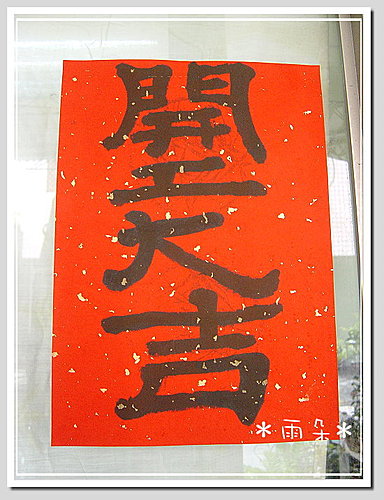 開工大吉
*雨朵*